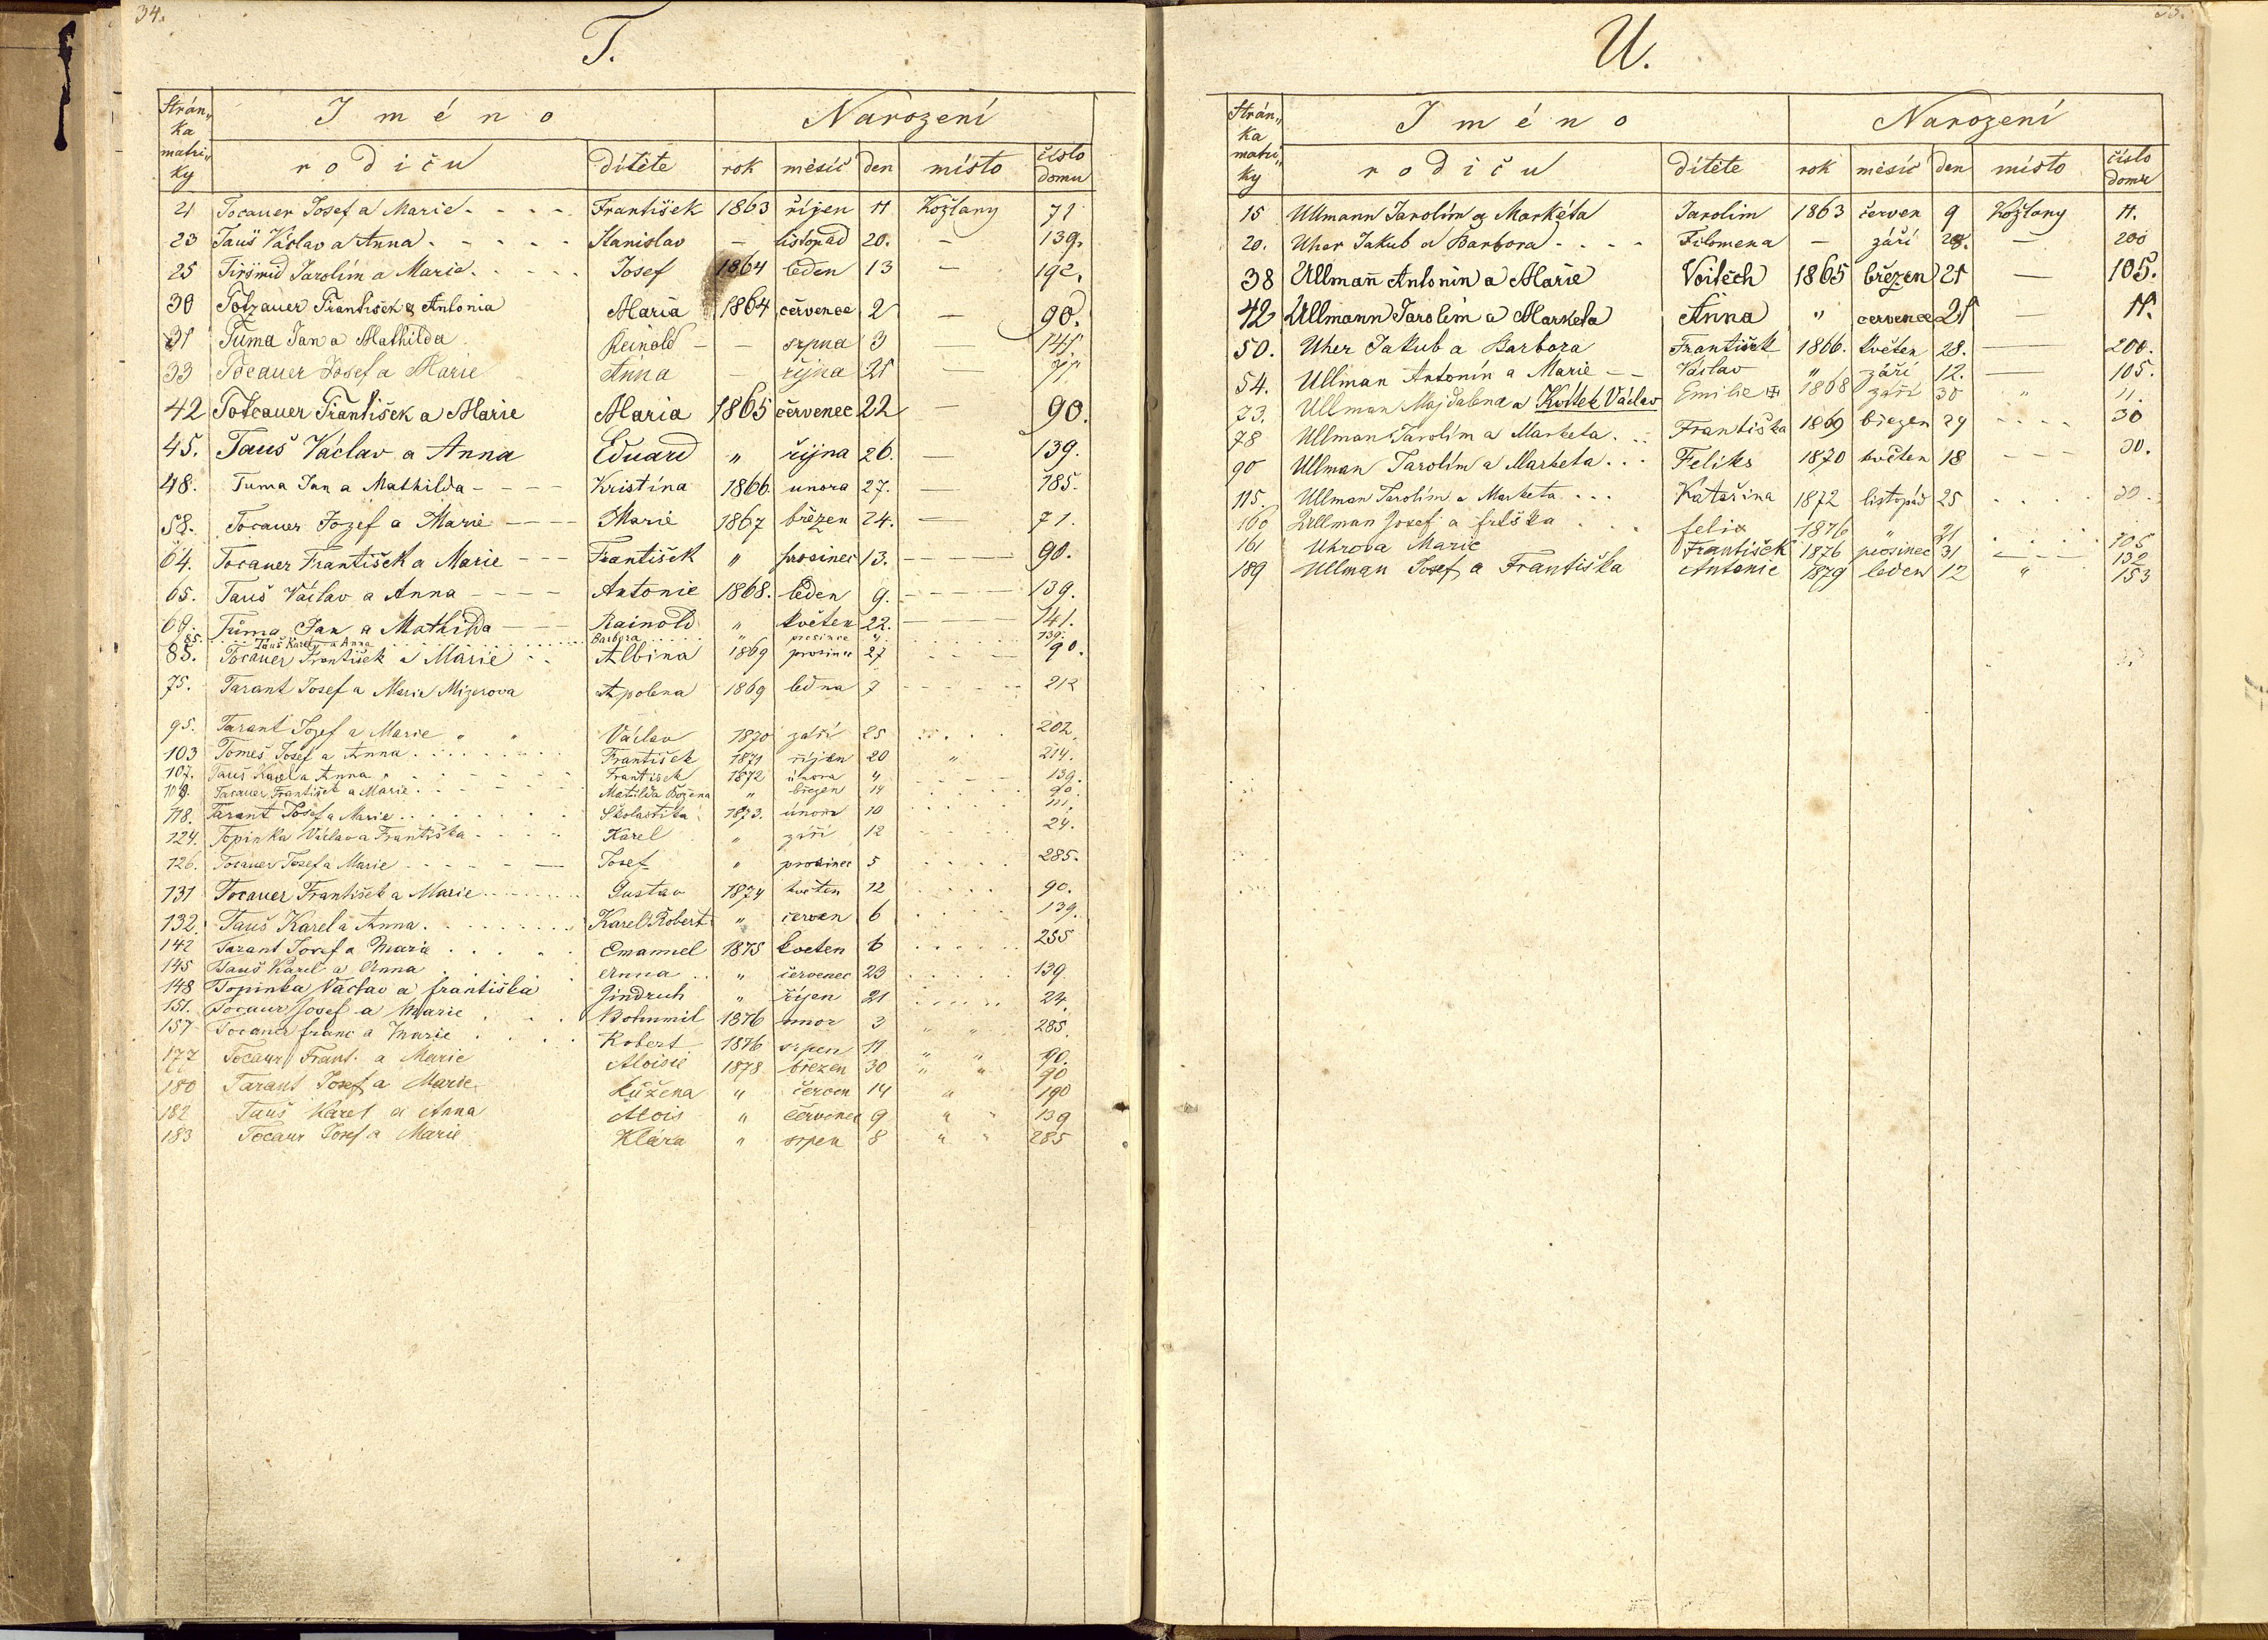 34.
T.
Strán„ ka matri„ ky
Iméno
Narození
rodičů dítěte rok měsíc den místo číslo domu
21 Tocauer Josef a Marie - - - - František 1863 říjen 11 Kožlany 71
23 Tauš Václav a Anna - - - - - Stanislav — listopad 20. — 139.
25 Jarolím a Marie - - - - Josef 1864 leden 13 — 192.
30 Totzauer František & Antonia Maria 1864 červenec 2 — 90.
31 Tuma Jan a Mathilda Reinold — — srpna 3 — 141
33 Tocauer Josef a Marie Anna — října 21 — 71
42 Totcauer František a Marie Maria 1865 červenec 22 — 90.
45. Tauš Václav a Anna Eduard „ října 26. — 139.
48. Tuma Jan a Mathilda - - - - Kristína 1866. unora 27. — 185.
58. Tocauer Jozef a Marie - - - - Marie 1867 březen 24. — 71.
64. Tocauer František a Marie - - - František „ prosinec 13. - - - - 90.
65. Tauš Václav a Anna - - - - Antonie 1868. leden 9. - - - - 139.
69. Tůma Jan a Mathilda - - Rainold „ květen 22. - - - - 141.
85. Tauš Karel a Anna Barbora „ prosince „ 139.
85. Tocauer František a Marie - - Albina 1869 prosinec 27 - - - - 90.
75. Tarant Josef a Marie Mizerova Apolena 1869 ledna 7 - - - - 212
95. Tarant Jozef a Marie „ „ Václav 1870 září 25 . . . . 202.
103 Tomeš Josef a Anna . . . . František 1871 říjen 20 „ 214.
107. Tauš Karel a Anna . . . . František 1872 února 4 . . . . 139.
Tocauer František a Marie . . . . Matilda Božena „ březen 14 . . . . 90.
118. Tarant Josef a Marie . . . . Školastika 1873. února 10 . . . . 111.
124. Topinka Václav a Františka . . . . Karel „ září 12 . . . . 24.
126. Tocauer Josef a Marie - - - - Josef „ prosinec 5 . . . . 285.
131 Tocauer František a Marie . . . . Gustav 1874 květen 12 . . . . 90.
132. Tauš Karel a Anna . . . . Karel Robert „ červen 6 . . . . 139.
142 Tarant Josef a Marie . . . . Emanuel 1875 kveten 6 . . . . 255
145 Tauš Karel a Anna . . . . Anna . . „ červenec 23 . . . . 139.
148 Topinka Václav a františka Jindruch „ říjen 21 . . . . 24.
151. Tocaur Josef a Marie . . . Bohumil 1876 unor 3 „ „ 285.
157 Tocauer franc a Marie . . . . Robert 1876 srpen 11 „ „ 90.
177 Tocaur Frant. a Marie Aloisie 1878 březen 30 „ „ 90
180 Tarant Josef a Marie Růžena „ červen 14 „ 190
182 Tauš Karel a Anna Alois „ červenec 9 „ „ 139
183 Tocaur Josef a Marie Klára „ srpen 8 „ „ 285
U.
Strán„ ka matri„ ky
Iméno
Narození
rodičů dítěte rok měsíc den místo číslo domu
15 Ullmann Jarolím a Markéta Jarolim 1863 červen 9 Kožlany 11.
20. Uher Jakub a Barbora - - - - Filomena — září — 200
38 Ullmann Antonín a Marie Voitěch 1865 březen 21 — 105.
42 Ullmann Jarolím a Marketa Anna „ červenec 21 — 11.
50. Uher Jakub a Barbora František 1866. květen 28. — 200.
54. Ullman Antonín a Marie - - Václav „ září 12. — 105.
73. Ullman Majdalena a Kottek Václav Emilie 1868 září 30 „ 11.
78 Ullman Jarolím a Marketa. . . Františka 1869 březen 29 - - - - 30
90 Ullman Jarolím a Marketa. . . Feliks 1870 květen 18 - - - 30.
115. Ullman Jarolím a Marketa. . . Kateřina 1872 listopád 25 . . . . 30.
160 Ullman Josef a . . . felix 1876 „ 21 . . . . 105
161 Uhrova Marie František 1876 prosinec 31 - - - - 132
189 Ullman Josef a Františka Antonie 1879 leden 12 „ 153